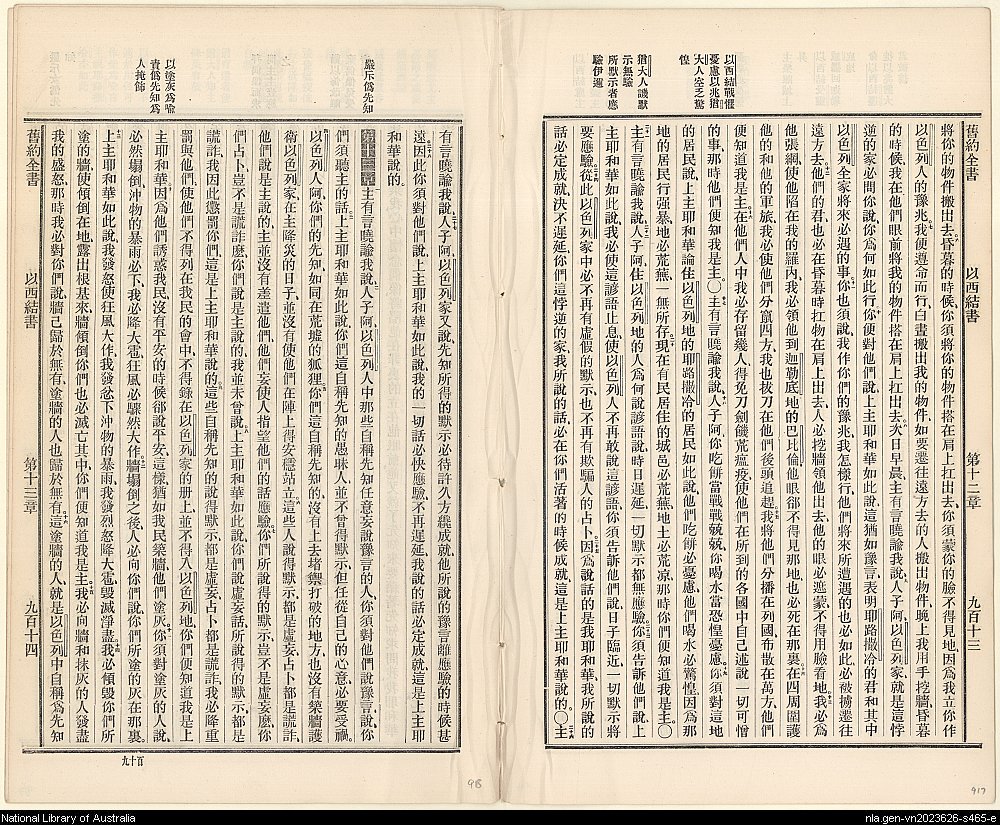 舊約全書 以西結書 第十二章 九百十三
以西結戰慄
憂慮以兆猶
大人空乏驚
惶
猶大人譏默
示無驗
所默示者應
驗伊邇
將你的物件搬出去昏暮的時候你須將你的物件搭在肩上扛出去你須蒙你的臉不得見地因爲我立你作
以色列人的豫兆我便遵命而行白晝搬出我的物件如要遷往遠方去的人搬出物件晚上我用手挖牆昏暮
的時候我在他們眼前將我的物件搭在肩上扛出去次日早晨主有言曉諭我說人子阿以色列家就是這悖
逆的家必問你說你爲何如此行你便對他們說上主耶和華如此說這猶如豫言表明耶路撒冷的君和其中
以色列全家將來必遇的事你也須說我作你們的豫兆我怎樣行他們將來所遭遇的也必如此必被擄遷往
遠方去他們的君也必在昏暮時扛物在肩上出去人必挖牆領他出去他的眼必遮蒙不得用臉看地我必爲
他張網使他陷在我的羅內我必領他到迦勒底地的巴比倫他眼卻不得見那地也必死在那裏在四周圍護
他的和他的軍旅我必使他們分竄四方我也拔刀在他們後頭追趕我將他們分播在列國布散在萬方他們
便知道我是主在他們人中我必存留幾人得免刀劍饑荒瘟疫使他們在所到的各國中自己述說一切可憎
的事那時他們便知我是主〇主有言曉諭我說人子阿你吃餅當戰戰兢兢你喝水當恐惶憂慮你須對這地
的居民說上主耶和華論住以色列地的耶路撒冷的居民如此說他們吃餅必憂慮他們喝水必驚惶因爲那
地的居民行強暴地必荒蕪一無所存現在有民居住的城邑必荒蕪地土必荒凉那時你們便知道我是主〇
主有言曉諭我說人子阿住以色列地的人爲何說諺語說時日遲延一切默示都無應驗你須告訴他們說上
主耶和華如此說我必使這諺語止息使以色列人不再敢說這諺語你須告訴他們說日子臨近一切默示將
要應驗從此以色列家中必不再有虛假的默示也不再有欺騙人的占卜因爲說話的是我耶和華我所說的
話必定成就決不遲延你們這悖逆的家我所說的話必在你們活著的時候成就這是上主耶和華說的〇主
嚴斥僞先知
以塗灰爲喩
責僞先知爲
人掩飾
有言曉諭我說人子阿以色列家又說先知所得的默示必待許久方纔成就他所說的豫言離應驗的時候甚
遠因此你須對他們說上主耶和華如此說我的一切話必快應驗不再遲延我說的話必定成就這是上主耶
和華說的
第十三章主有言曉諭我說人子阿以色列人中那些自稱先知任意妄說豫言的人你須對他們說豫言說你
們須聽主的話上主耶和華如此說你們這自稱先知的愚昧人並不曾得默示但任從自己的心意必要受禍
以色列人阿你們的先知如同在荒墟的狐狸你們這自稱先知的沒有上去堵禦打破的地方也沒有築牆護
衛以色列家在主降災的日子並沒有使他們在陣上得安穩站立這些人說得默示都是虛妄占卜都是謊詐
他們說是主說的主並沒有差遣他們他們妄使人指望他們的話應驗你們所說得的默示豈不是虛妄麽你
們占卜豈不是謊詐麽你們說是主說的我並未曾說上主耶和華如此說你們說虛妄話所說得的默示都是
謊詐我因此懲罰你們這是上主耶和華說的這些自稱先知的說得默示都是虛妄占卜都是謊詐我必降重
罰與他們使他們不得列在我民的會中不得錄在以色列家的册上並不得入以色列地你們便知道我是上
主耶和華因爲他們誘惑我民沒有平安的時候卻說平安這樣猶如我民築牆他們塗灰你須對塗灰的人說
必然塌倒沖物的暴雨必下我必降大雹狂風必驟然大作牆塌倒之後人必向你們說你們所塗的灰在那裏
上主耶和華如此說我發怒使狂風大作我發忿下沖物的暴雨我發烈怒降大雹毀滅淨盡我必傾毀你們所
塗的牆使傾倒在地露出根基來牆傾倒你們也必滅亡其中你們便知道我是主我必向牆和抹灰的人發盡
我的盛怒那時我必對你們說牆已歸於無有塗牆的人也歸於無有這塗牆的人就是以色列中自稱爲先知
舊約全書 以西結書 第十三章 九百十四
百十九
918
917
National Library of Australia
nla.gen-vn2023626-s465-e